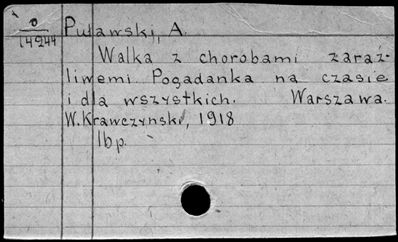 0
14244
Puławski, A.
Walka z chorobami zaraź-
liwemi Pogadanka na czasie
i dla wszystkich. Warszawa.
W. Krawczynski, 1918